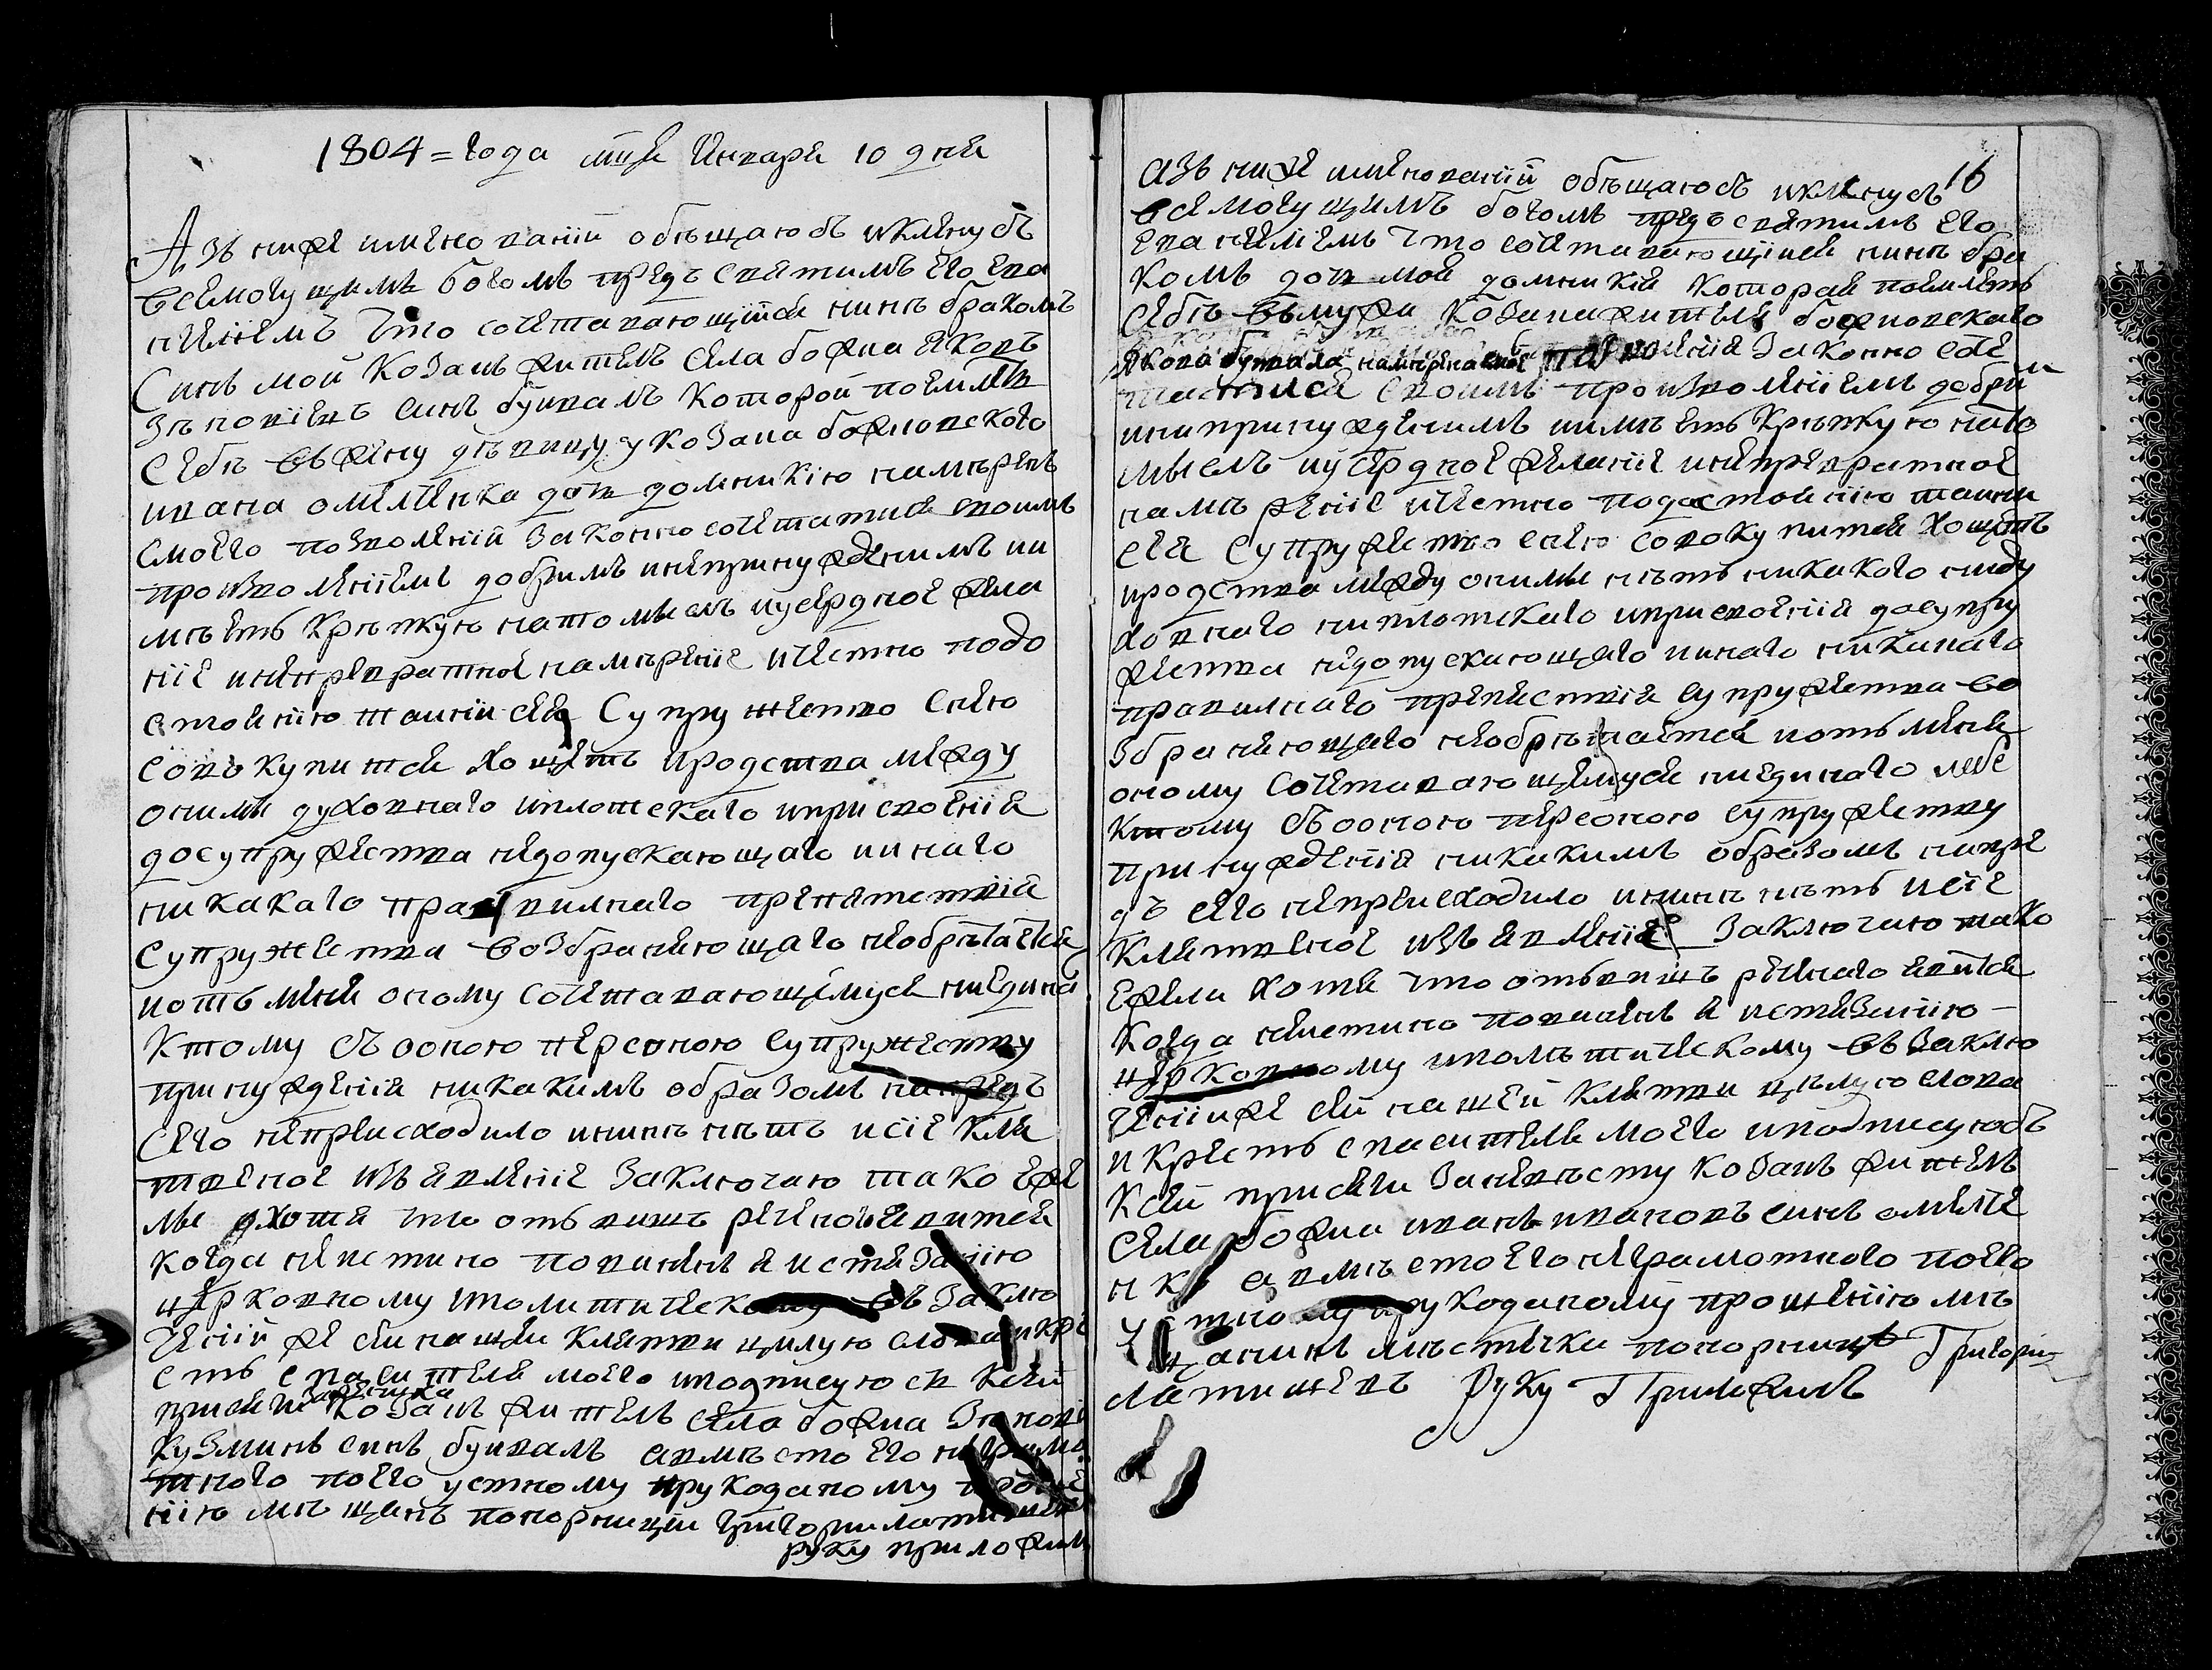 1804 = года мця Января 10 дня
Азъ ниже имянований обѣщаюсъ икленусъ
всемогущимъ богомъ предъ святимъ его ева
нгелиемъ что сочетавающийся нинѣ бракомъ
Синъ мой козакъ житель села божка яковъ
синъ бувалъ которой поемлетъ
себѣ вжену дѣвицу козака божковского
ивана омелченка дочъ домникию намѣренъ
смоего позволений законно сочетатися своимъ
произволениемъ добримъ инепринужденимъ ии
мѣетъ крѣпкую натомыслъ иусердное жела
ние инепревратное намѣрение ичестно подо
стоянию таини сея Супружество снею
совокупится хощетъ иродства между
оними духовнаго иплотскаго иприсвоения
досупружества недопускающаго ииного
никакаго правилнаго препятствия
супружества возбраняющаго необрѣтается
иотъ мене оному сочетавающемуся ниедина
ктому съоною персоною супружеству
принуждения никакимъ образомъ напредъ
сего непреисходило ининѣ нѣтъ исие кля
твеное изъявление заключаю тако еже
ли хотя что отъ вишъ реченого явится
когда неистино повиненъ я истязанию
церковному иполитическому въ заклю
чений же сей нашей клятви цилую слова икре
стъ спасителя моего иподписуюся ксей
присяги козакъ житель села божка
кузминъ синъ бувалъ авмѣсто его неграмо
тного поего устному ирукоданому проше
нию мѣщанъ погорницки григорий
руку приложилъ
16
азъ ниже имянований обѣщаюсъ икленусъ
всемогущимъ богомъ предъ святимъ его
евангелиемъ что сочетавающийся нинѣ бра
комъ дочъ моя домникия которая поемлетъ
себѣ въмужи козака жителя божковскаго
якова бувала намѣрена законно соче
татися своимъ произволениемъ добрим
инипринужденимъ иимѣетъ крѣпкую нато
мыслъ иусердное желание инепревратное
намѣрение ичестно подостоянию таини
сея супружество снею совокупитя хощетъ
иродства между оними нѣтъ никакого ниду
ховнаго ниплотскаго иприсвоения досупру
жества недопускающаго ииного никакаго
правилнаго препяствия супружества во
збраняющаго необрѣтается иотъ мене
оному сочетавающемуся ниединаго небе
ктому съоною персоною супружеству
принуждения никакимъ образомъ напре
дъ сего непреисходило ининѣ нѣтъ исие
клятвеное изъявление заключаю тако
ежели хотя что отъвишъ реченаго явится
когда неистино повиненъ я истязанию
церковному иполитическому въ заклю
чении же сей нашей клятви цѣлую слова
и крестъ спасителя моего иподписуюсъ
ксей присяги заневѣсту козакъ житель
села божка иванъ ивановъ синъ омелче
нкъ авмѣсто его неграмотного поего
устному ирукоданому прошению мѣ
щанинъ мѣстечка погорницъ Григорий
руку Приложилъ